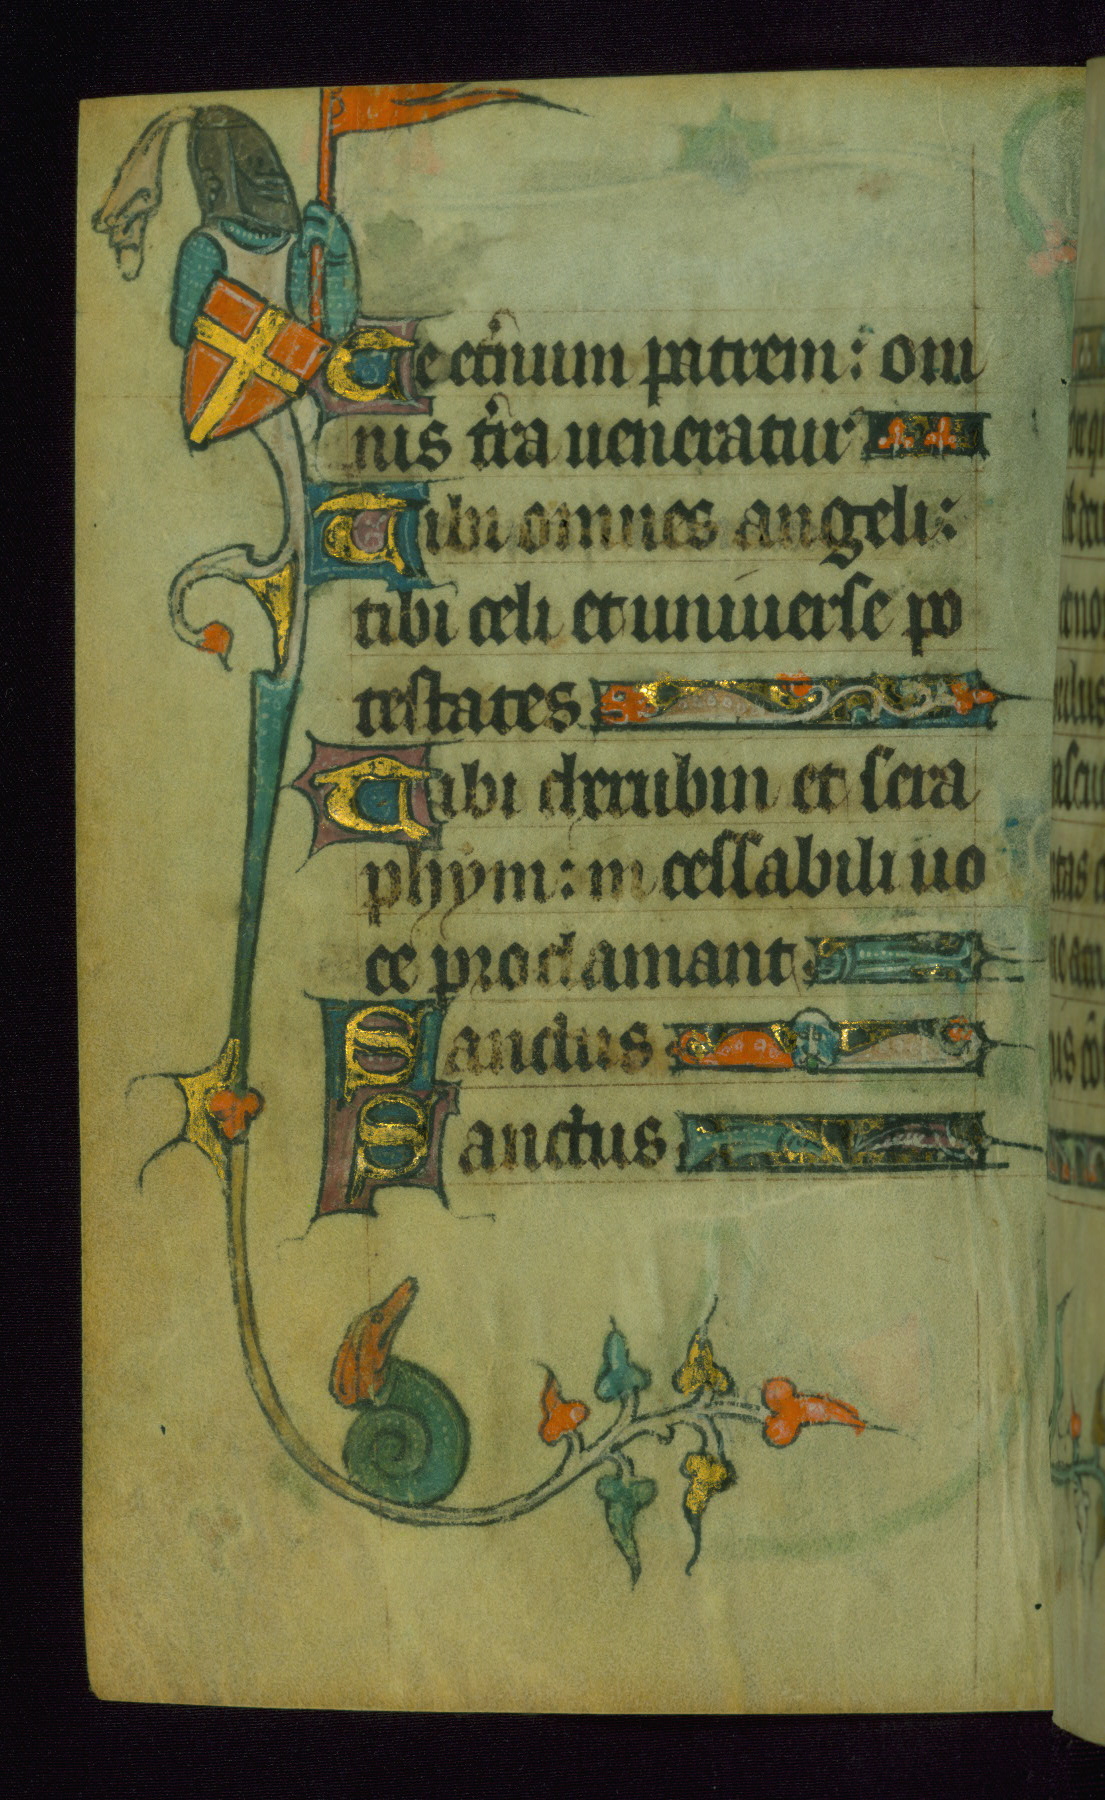 Te et̾nuum patrem: om
nis t̾ra ueneratur
Tibi omnes angeli:
tibi celi et uniuerse po
testates
Tibi cherubin et sera
phym: in cessabili uo
ce proclamant
Sanctus
Sanctus